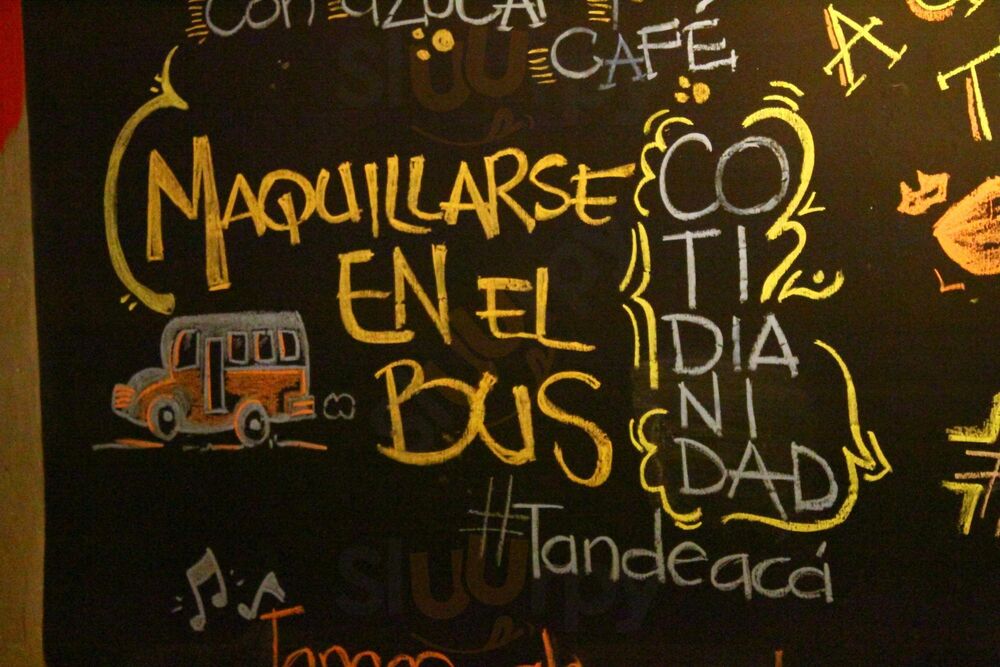 con azúcar
CAFÉ
A
MAQUILLARSE
EN EL
BUS
CO
TI
DIA
NI
DAD
#Tandeacá
sluurpy
sluurpy